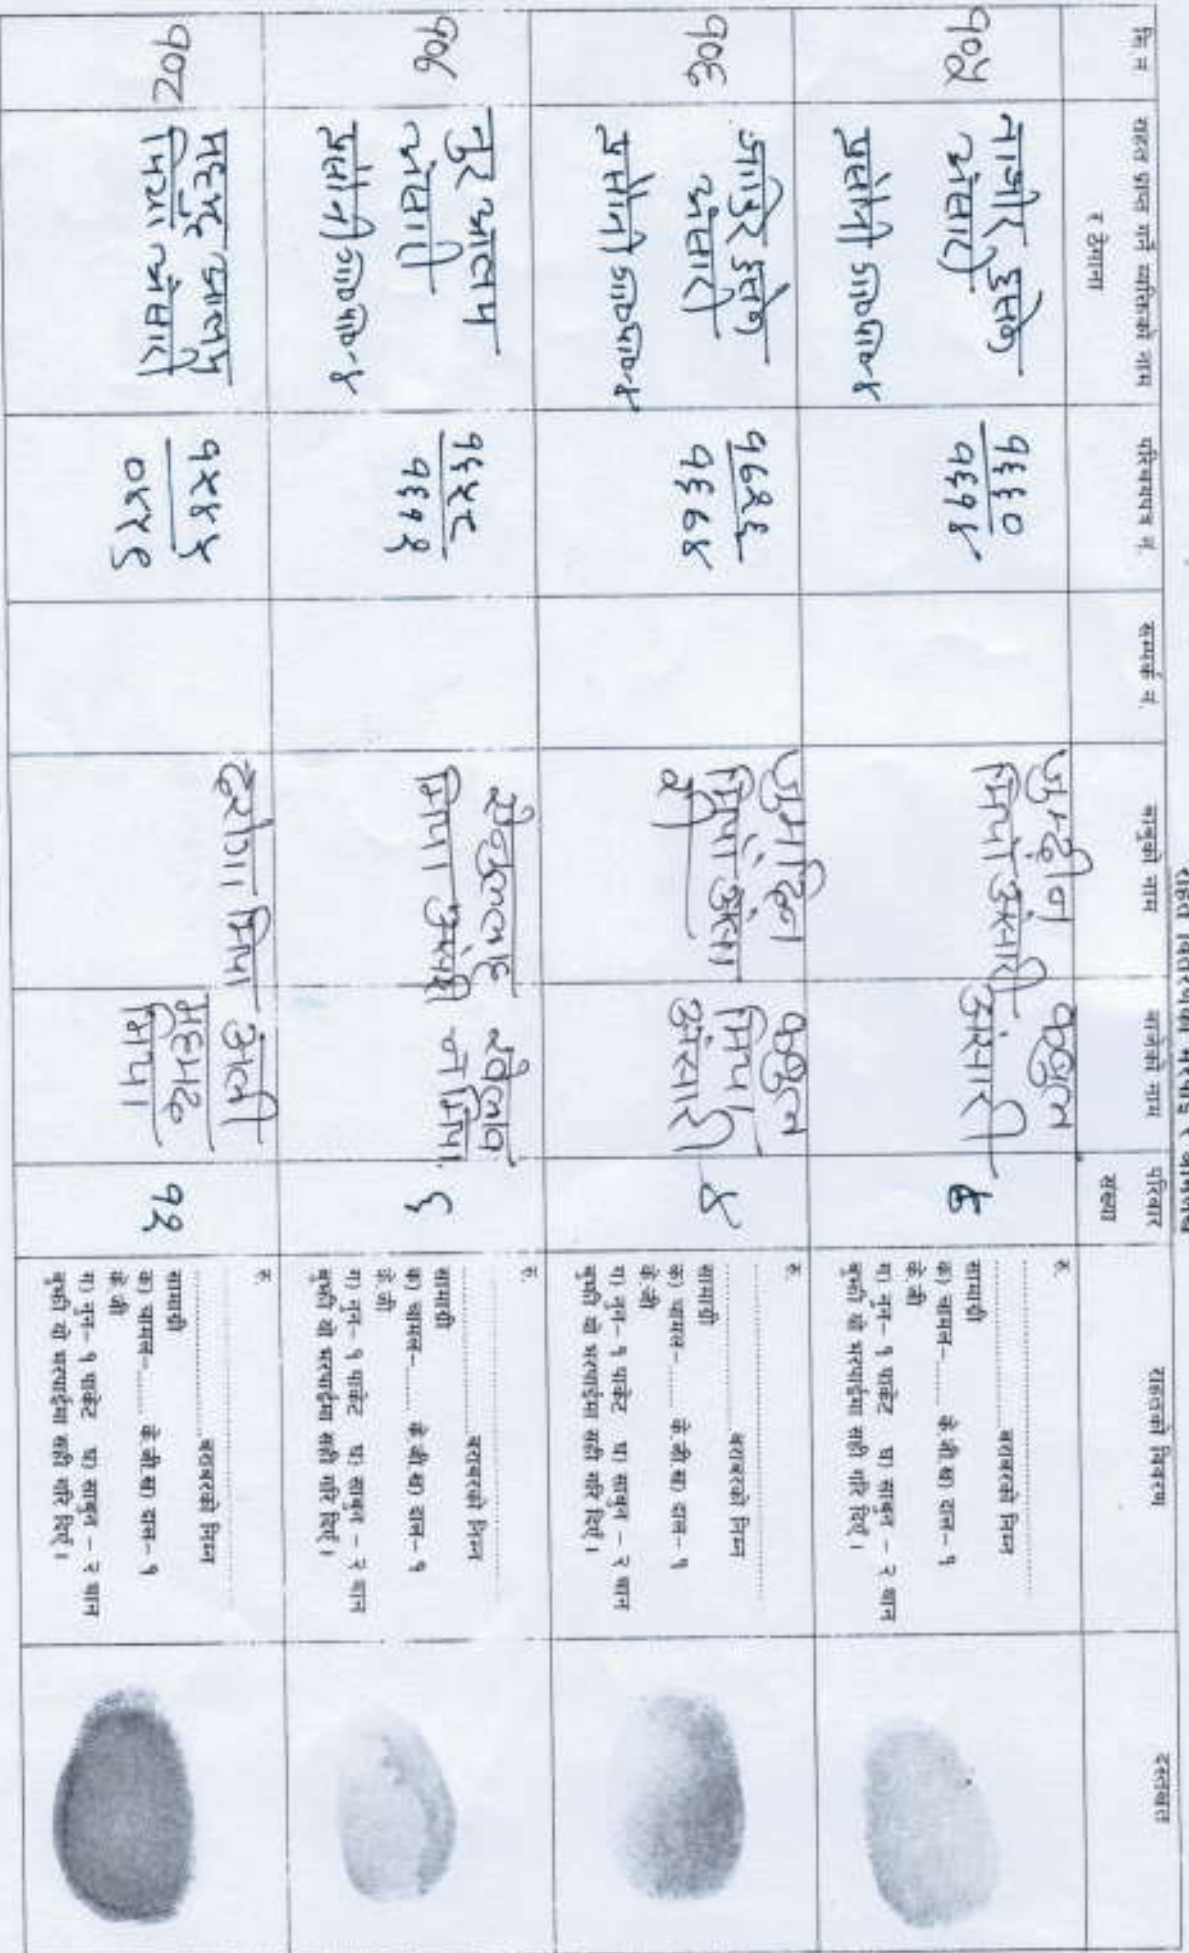 राहत वितरणको भरपाई र
सि.नं
राहत प्राप्त गर्ने व्यक्तिको नाम
र ठेगाना
परिचयपत्र नं.
सम्पर्क नं.
बाबुको नाम
बाजेको नाम
परिवार
संख्या
राहतको विवरण
दस्तखत
१०५
अंसारी
प्रसौनी गा०पा०-४
१६६०
१६१४
मियाँ अंसारी
अंसारी
५
रु.
बराबरको निम्न
सामाग्री
क) चामल-...... के.जी.ख) दाल- १
के.जी
ग) नुन- १ पाकेट घ) साबुन - २ थान
बुझी यो भरपाईमा सही गरि दिएँ ।
१०६
अंसारी
प्रसौनी गा०पा०-४
१६७४
मियाँ अंसा
री
मियाँ
अंसारी
४
रु.
बराबरको निम्न
सामाग्री
क) चामल-...... के.जी.ख) दाल- १
के.जी
ग) नुन- १ पाकेट घ) साबुन - २ थान
बुझी यो भरपाईमा सही गरि दिएँ ।
१०७
नुर आलम
अंसारी
प्रसौनी गा०पा०-४
१६५८
१६१२
मिया अंसारी
६
रु.
बराबरको निम्न
सामाग्री
क) चामल-...... के.जी.ख) दाल- १
के.जी
ग) नुन- १ पाकेट घ) साबुन - २ थान
बुझी यो भरपाईमा सही गरि दिएँ ।
१०८
आलम
मिया अंसारी
१५४५
०४५९
मिया
अली
महमद
मिया
१२
रु.
बराबरको निम्न
सामाग्री
क) चामल-...... के.जी.ख) दाल- १
के.जी
ग) नुन- १ पाकेट घ) साबुन - २ थान
बुझी यो भरपाईमा सही गरि दिएँ ।